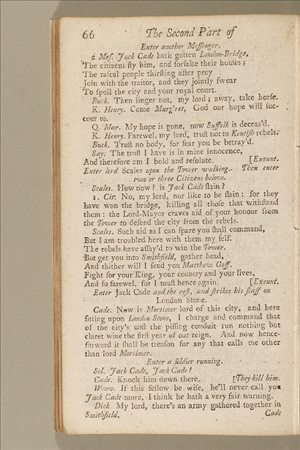 66 The Second Part of
Enter another Messenger.
2 Mes. Jack Cade hath gotten London-Bridge,
The citizens fly him, and forsake their houses;
The rascal people thirsting after prey
Join with the traitor, and they jointly swear
To spoil the city and your royal court.
Buck. Then linger not, my lord; away, take horse.
K. Henry. Come Marg'ret, God our hope will suc-
cour us.
Q. Mar. My hope is gone, now Suffolk is deceas'd.
K. Henry. Farewel, my lord, trust not to Kentish rebels.
Buck. Trust no body, for fear you be betray'd.
Say. The trust I have is in mine innocence,
And therefore am I bold and resolute. [Exeunt.
Enter lord Scales upon the Tower walking. Then enter
two or three Citizens below.
Scales. How now? is Jack Cade slain?
1. Cit. No, my lord, nor like to be slain: for they
have won the bridge, killing all those that withstand
them: the Lord-Mayor craves aid of your honour from
the Tower to defend the city from the rebels.
Scales. Such aid as I can spare you shall command,
But I am troubled here with them my self.
The rebels have assay'd to win the Tower.
But get you into Smithfield, gather head,
And thither will I send you Matthew Goff.
Fight for your King, your country and your lives,
And so farewel, for I must hence again. [Exeunt.
Enter Jack Cade and the rest, and strikes his staff on
London Stone.
Cade. Now is Mortimer lord of this city, and here
sitting upon London Stone, I charge and command that
of the city's cost the pissing conduit run nothing but
claret wine the first year of our reign. And now hence-
forward it shall be treason for any that calls me other
than lord Mortimer.
Enter a soldier running.
Sol. Jack Cade, Jack Cade!
Cade. Knock him down there. [They kill him.
Weav. If this fellow be wise, he'll never call you
Jack Cade more, I think he hath a very fair warning.
Dick. My lord, there's an army gathered together in
Smithfield. Cade